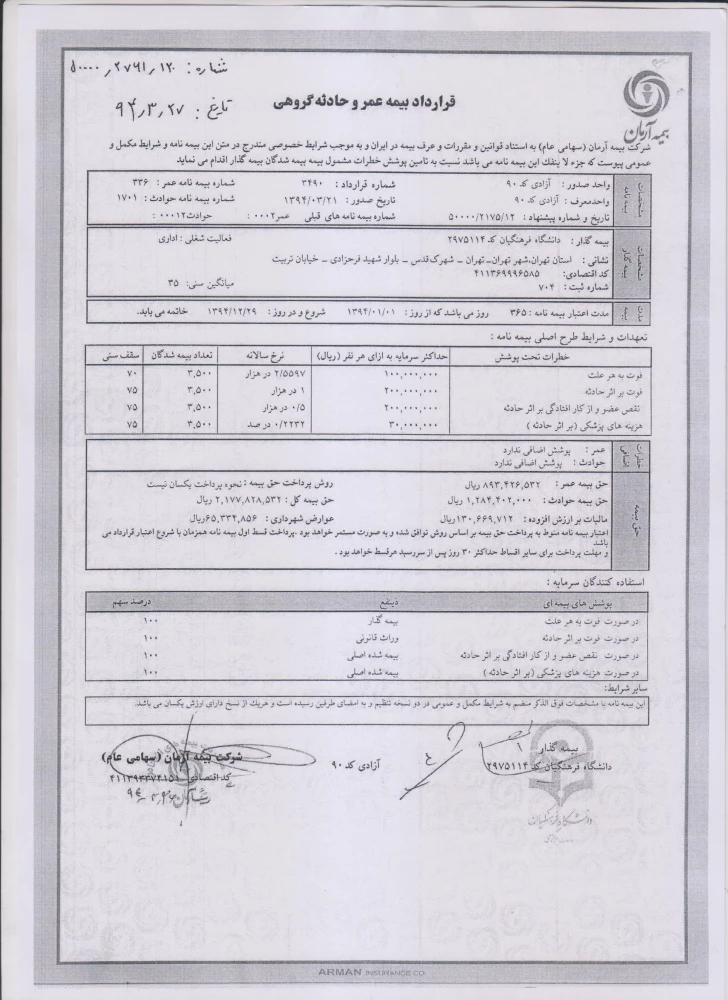 شماره: ۵۰۰۰۰/۲۷۶۱/۱۲۰
تاریخ: ۹۴/۳/۲۷
بیمه آرمان
قرارداد بیمه عمر و حادثه گروهی
شرکت بیمه آرمان (سهامی عام) به استناد قوانین و مقررات و عرف بیمه در ایران و به موجب شرایط خصوصی مندرج در متن این بیمه نامه و شرایط مکمل و
عمومی پیوست که جزء لا ینفك این بیمه نامه می باشد نسبت به تامین پوشش خطرات مشمول بیمه بیمه شدگان بیمه گذار اقدام می نماید
مشخصات بیمه نامه
واحد صدور : آزادی کد ۹۰ شماره قرارداد : ۳۴۹۰ شماره بیمه نامه عمر : ۳۳۶
واحدمعرف : آزادی کد ۹۰ تاریخ صدور : ۱۳۹۴/۰۳/۲۱ شماره بیمه نامه حوادث : ۱۷۰۱
تاریخ و شماره پیشنهاد : ۵۰۰۰۰/۲۱۷۵/۱۲ شماره بیمه نامه های قبلی عمر:۰۰۰۲ حوادث:۰۰۰۱۲
مشخصات بیمه گذار
بیمه گذار : دانشگاه فرهنگیان کد ۲۹۷۵۱۱۴ فعالیت شغلی : اداری
نشانی : استان تهران،شهر تهران-تهران - شهرک قدس - بلوار شهید فرحزادی - خیابان تربیت
کد اقتصادی: ۴۱۱۳۶۹۹۹۶۵۸۵
شماره ثبت : ۷۰۴ میانگین سنی: ۳۵
مدت بیمه
مدت اعتبار بیمه نامه : ۳۶۵ روز می باشد که از روز : ۱۳۹۴/۰۱/۰۱ شروع و در روز : ۱۳۹۴/۱۲/۲۹ خاتمه می یابد.
تعهدات و شرایط طرح اصلی بیمه نامه :
خطرات تحت پوشش حداکثر سرمایه به ازای هر نفر (ریال) نرخ سالانه تعداد بیمه شدگان سقف سنی
فوت به هر علت ۱۰۰,۰۰۰,۰۰۰ ۲/۵۵۹۷ در هزار ۳,۵۰۰ ۷۰
فوت بر اثر حادثه ۲۰۰,۰۰۰,۰۰۰ ۱ در هزار ۳,۵۰۰ ۷۵
نقص عضو و از کار افتادگی بر اثر حادثه ۲۰۰,۰۰۰,۰۰۰ ۰/۵ در هزار ۳,۵۰۰ ۷۵
هزینه های پزشکی (بر اثر حادثه ) ۳۰,۰۰۰,۰۰۰ ۰/۲۲۳۲ در صد ۳,۵۰۰ ۷۵
خطرات اضافی
عمر : پوشش اضافی ندارد
حوادث : پوشش اضافی ندارد
حق بیمه
حق بیمه عمر : ۸۹۳,۴۲۶,۵۳۲ ریال روش پرداخت حق بیمه : نحوه پرداخت یکسان نیست
حق بیمه حوادث : ۱,۲۸۴,۴۰۲,۰۰۰ ریال حق بیمه کل : ۲,۱۷۷,۸۲۸,۵۳۲ ریال
مالیات بر ارزش افزوده : ۱۳۰,۶۶۹,۷۱۲ ریال عوارض شهرداری : ۶۵,۳۳۴,۸۵۶ ریال
اعتبار بیمه نامه منوط به پرداخت حق بیمه بر اساس روش توافق شده و به صورت مستمر خواهد بود .پرداخت قسط اول بیمه نامه همزمان با شروع اعتبار قرارداد می
باشد
و مهلت پرداخت برای سایر اقساط حداکثر ۳۰ روز پس از سررسید هرقسط خواهد بود .
استفاده کنندگان سرمایه :
پوشش های بیمه ای ذینفع درصد سهم
در صورت فوت به هر علت بیمه گذار ۱۰۰
در صورت فوت بر اثر حادثه وراث قانونی ۱۰۰
در صورت نقص عضو و از کار افتادگی بر اثر حادثه بیمه شده اصلی ۱۰۰
در صورت هزینه های پزشکی (بر اثر حادثه ) بیمه شده اصلی ۱۰۰
سایر شرایط:
این بیمه نامه با مشخصات فوق الذکر منضم به شرایط مکمل و عمومی در دو نسخه تنظیم و به امضای طرفین رسیده است و هریك از نسخ دارای ارزش یکسان می باشد.
بیمه گذار
دانشگاه فرهنگیان کد ۲۹۷۵۱۱۴
آزادی کد ۹۰
شرکت بیمه آرمان (سهامی عام)
کد اقتصادی
دانشگاه فرهنگیان
ARMAN INSURANCE CO